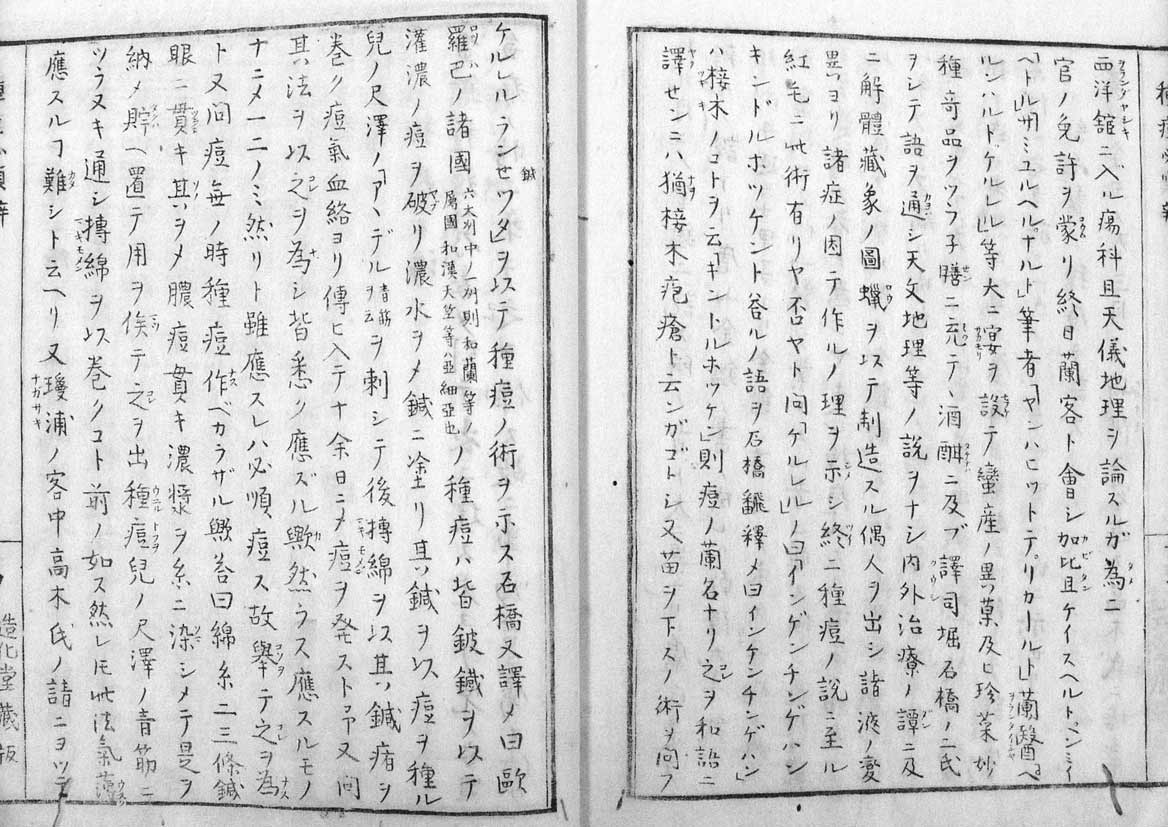 西洋舘ニ入ル瘍科且天儀地理ヲ論スルガ為ニ
官ノ免許ヲ蒙リ終日蘭客ト會シ加比且ケイスヘルト、ンミイ
ヘトル」州ミユルヘルナルト」筆者「ヤンハヒツトテリカールト」蘭醫「ペ
ルンハルトゲルレル」等大ニ宴ヲ設テ蠻産ノ異菓及ヒ珍菜妙
種竒品ヲツラ子膳ニ充テ、酒酣ニ及ブ譯司堀石橋ノ二氏
ヲシテ語ヲ通シ天文地理等ノ説ヲナシ内外治療ノ譚ニ及
ニ解體藏象ノ圖蠟ヲ以テ制造スル偶人ヲ出シ諸液ノ變
異ヨリ諸症ノ因テ作ルノ理ヲ示シ終ニ種痘ノ説ニ至ル
紅毛ニ此術有リヤ否ヤト问「ゲルレル」ノ曰「インゲンチンゲハン
キンドルホツケント答ルノ語ヲ石橋飜釋メ曰インケンチンゲハン」
ハ接木ノコトヲ云「キントルホツケン」則痘ノ蘭名ナリ之ヲ和語ニ
譯センニハ猶接木疱瘡ト云ンガゴトシ又苗ヲ下スノ術ヲ问フ
ケルレルランセワタ」ヲ以テ種痘ノ術ヲ示ス石橋又譯メ曰歐
羅巴ノ諸國六大州中ノ一州則和蘭等ノ屬國和漢天竺等ハ亞細亞也ノ種痘ハ皆鈹鍼ヲ以テ
灌濃ノ痘ヲ破リ濃水ヲメ鍼ニ塗リ其鍼ヲ以痘ヲ種ル
兒ノ尺澤ノ「アヽデル青筋ヲ云ヲ刺シテ後摶綿ヲ以其鍼痏ヲ
巻ク痘氣血絡ヨリ傳ヒ入テ十余日ニメ痘ヲ発スト帋又问
其法ヲ以之ヲ為シ皆悉ク應ズル歟然ラス應スルモノ
十ニメ一二ノミ然リト雖應スレハ必順痘ス故舉テ之ヲ為
ト又问痘無ノ時種痘作ベカラザル歟荅曰綿糸二三條鍼
眼ニ貫キ其ヲメ膿痘貫キ濃漿ヲ糸ニ染シメテ是ヲ
納メ貯ヘ置テ用ヲ俟テ之ヲ出種痘兒ノ尺澤ノ青筋ニ
ツラヌキ通シ摶綿ヲ以巻クコト前ノ如ス然レ𪜈此法氣薄
應スルヿ難シト云ヘリ又瓊浦ノ客中高木氏ノ請ニヨツテ
造化堂藏版